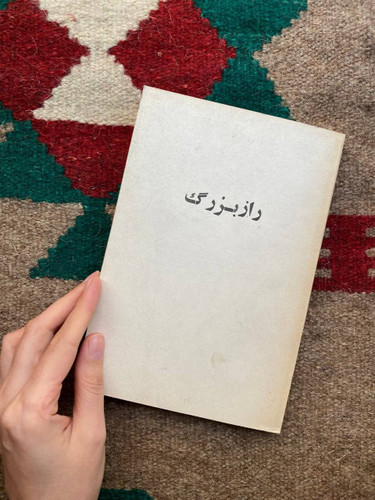 راز بزرگ